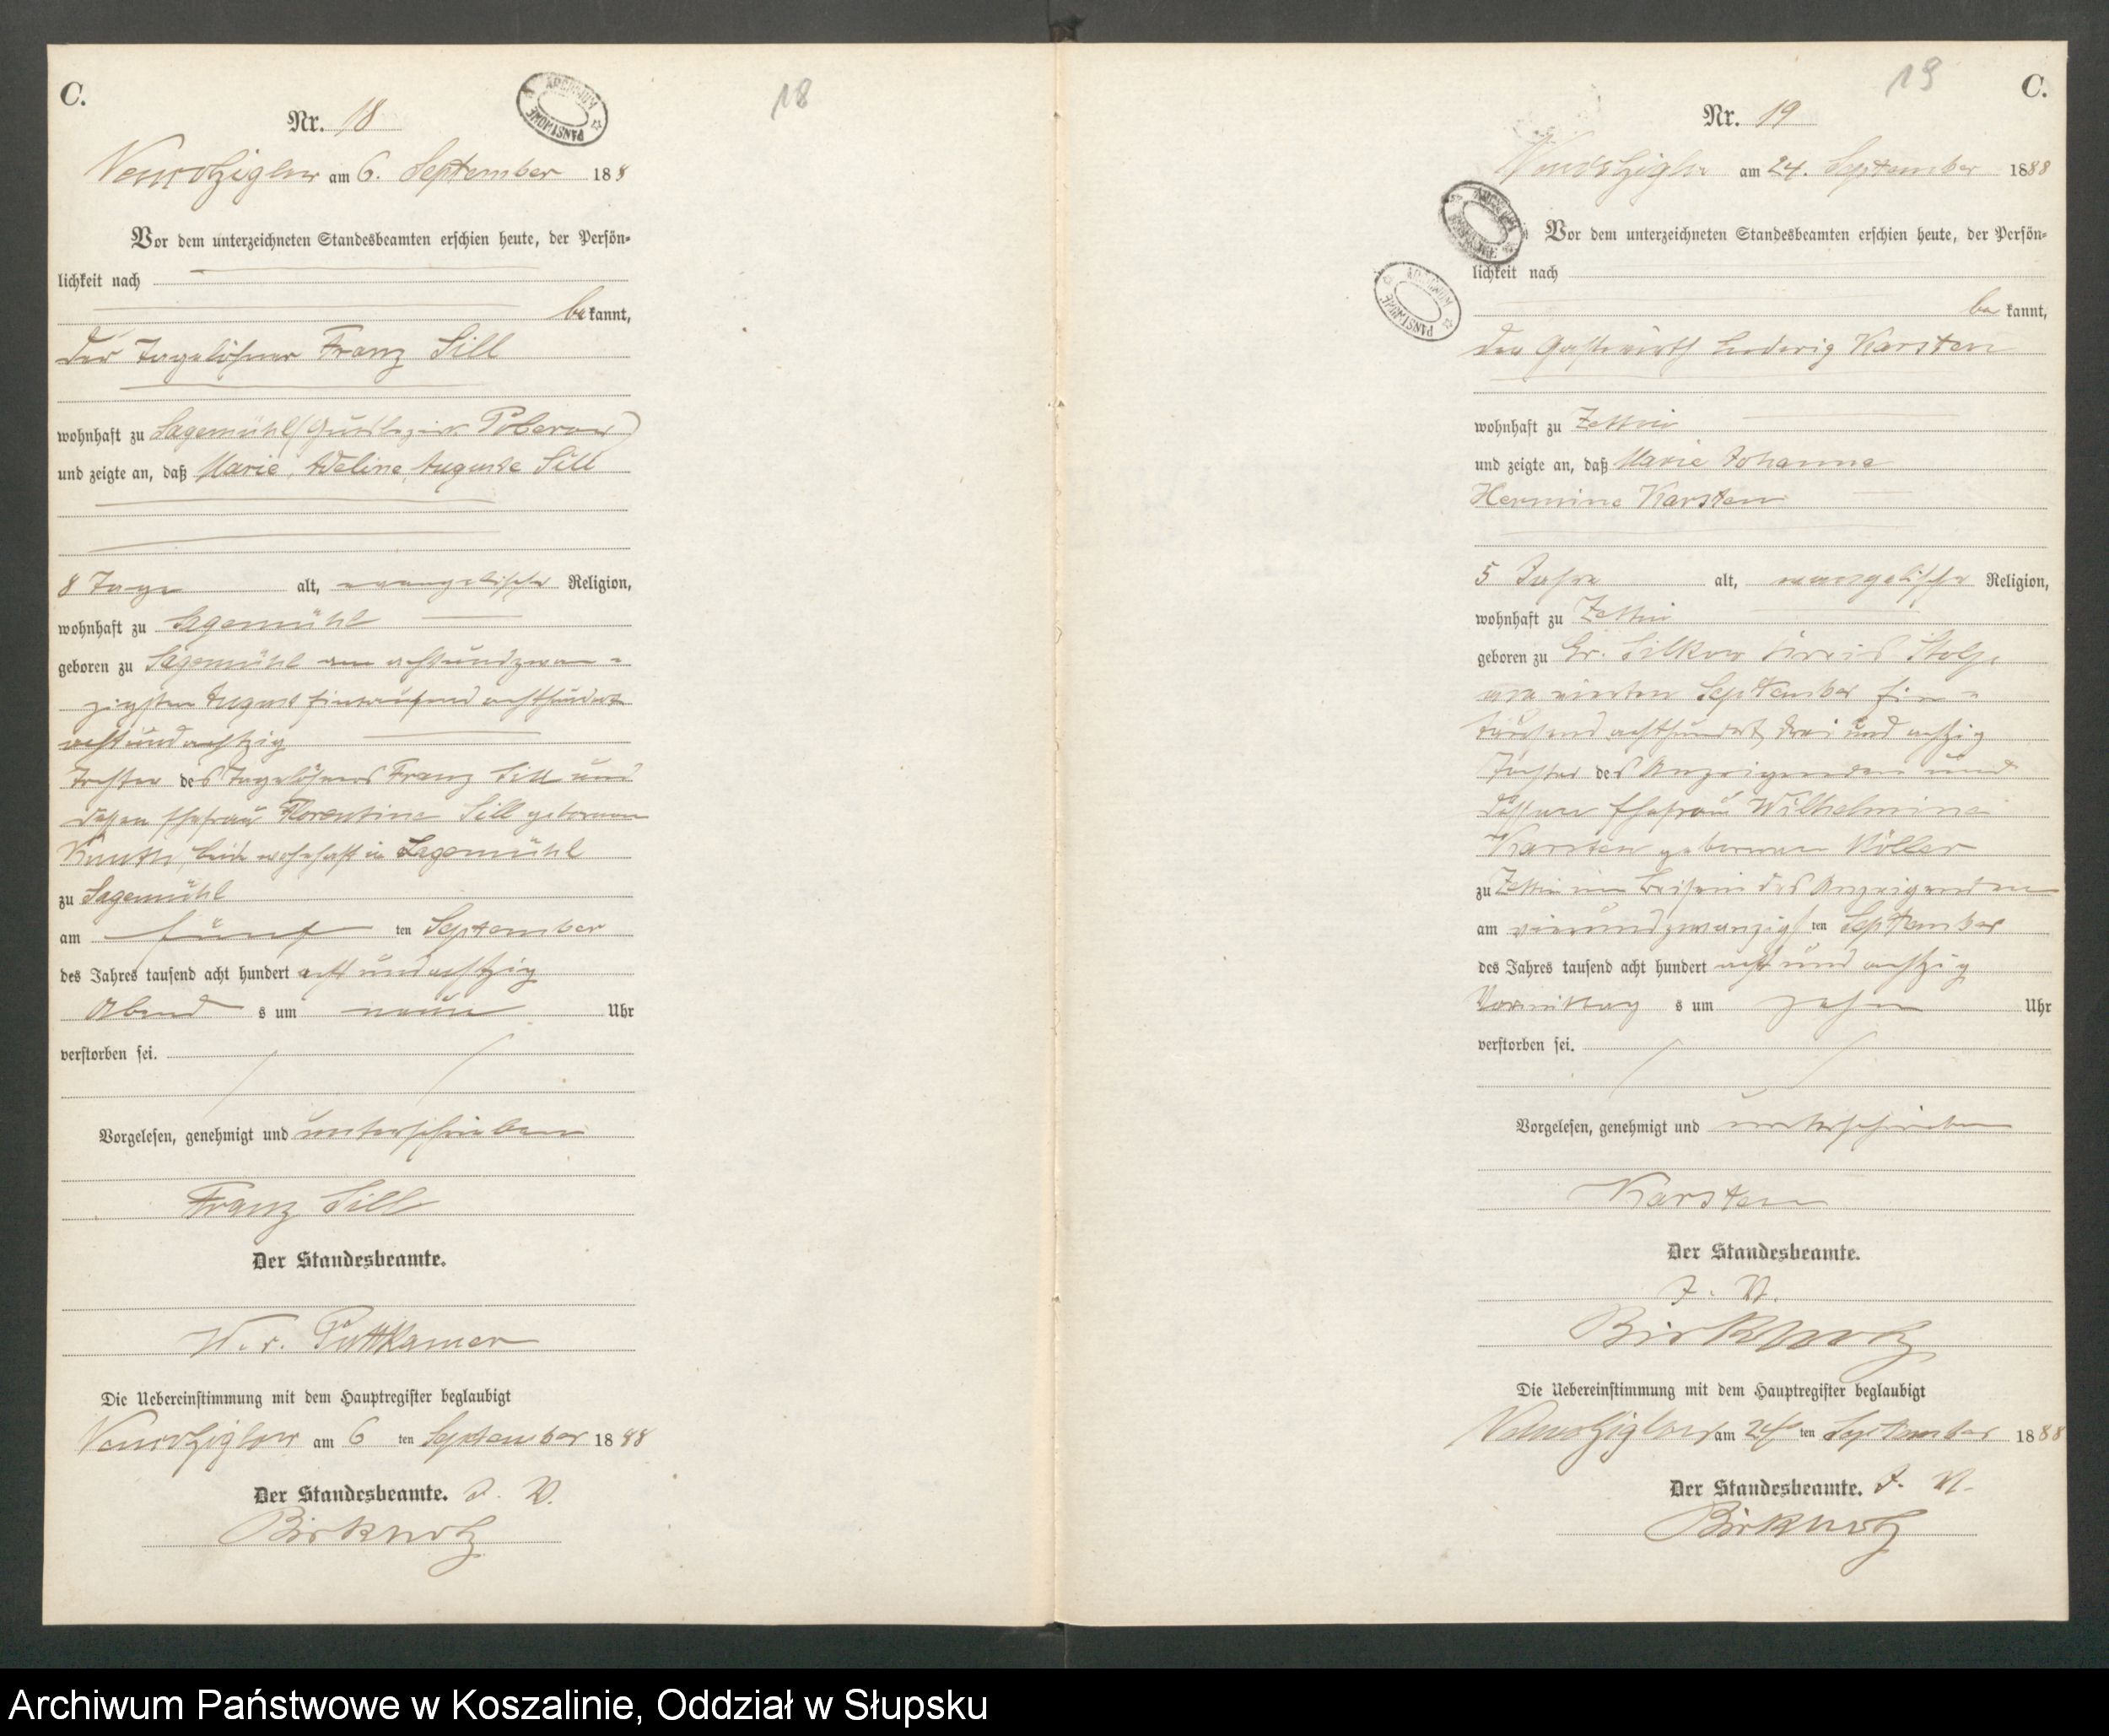 C.
18
Nr. 18
ARCHIWUM PAŃSTWOWE
am 6. September 188
Vor dem unterzeichneten Standesbeamten erschien heute, der Persön-
lichkeit nach
bekannt,
der Tagelöhner Franz Sill
wohnhaft zu Sagemühl (Gutsbezirk Poberow)
und zeigte an, daß Marie, Adeline, Auguste Sill
8 Tage alt, evangelischer Religion,
wohnhaft zu Sagemühl
geboren zu Sagemühl am achtundzwan-
zigsten August Eintausend achthundert
achtundachtzig
Tochter des Tagelöhners Franz Sill und
dessen Ehefrau Florentine Sill geborenen
beide wohnhaft in Sagemühl
zu Sagemühl
am fünften September
des Jahres tausend acht hundert acht und achtzig
Abends um neun Uhr
verstorben sei.
Vorgelesen, genehmigt und unterschrieben
Franz Sill
Der Standesbeamte.
W. v. Puttkamer
Die Uebereinstimmung mit dem Hauptregister beglaubigt
am 6 ten September 1888
Der Standesbeamte. J. V.
Birkholz
19
C.
Nr. 19
am 24. September 1888
ARCHIWUM PAŃSTWOWE
Vor dem unterzeichneten Standesbeamten erschien heute, der Persön-
lichkeit nach
ARCHIWUM PAŃSTWOWE
bekannt,
der Gastwirth Ludwig Karsten
wohnhaft zu Zettin
und zeigte an, daß Marie Johanna
Hermine Karsten
5 Jahre alt, evangelischer Religion,
wohnhaft zu Zettin
geboren zu Gr. Silkow Kreis Stolp
am vierten September Ein-
tausend achthundert drei und achtzig
Tochter des Anzeigenden und
dessen Ehefrau Wilhelmine
Karsten geborenen Möller
zu Zettin im Beisein des Anzeigenden
am vierundzwanzigsten September
des Jahres tausend acht hundert acht und achtzig
Vormittags um zehn Uhr
verstorben sei.
Vorgelesen, genehmigt und unterschrieben
Karsten
Der Standesbeamte.
J. V.
Birkholz
Die Uebereinstimmung mit dem Hauptregister beglaubigt
am 24 ten September 1888
Der Standesbeamte. J. V.
Birkholz
Archiwum Państwowe w Koszalinie, Oddział w Słupsku